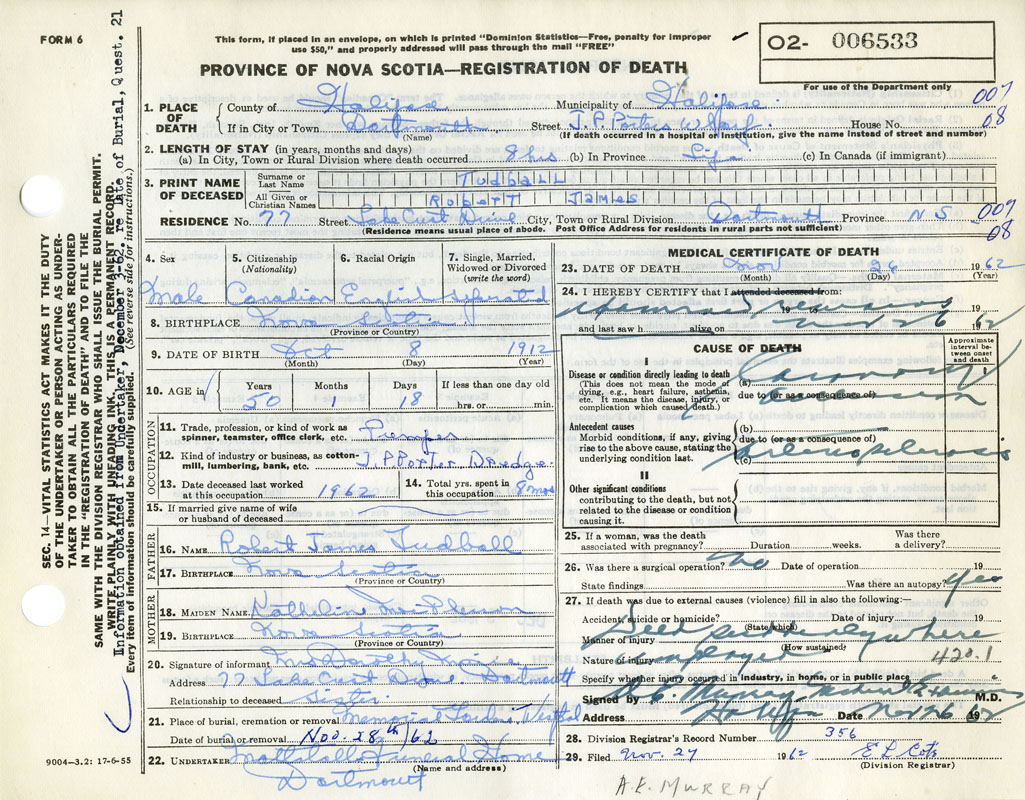 FORM 6
This form, if placed in an envelope, on which is printed "Dominion Statistics—Free, penalty for improper
use $50," and properly addressed will pass through the mail "FREE"
O2- 006533
PROVINCE OF NOVA SCOTIA—REGISTRATION OF DEATH
For use of the Department only
007
08
1. PLACE OF DEATH
County of Halifax Municipality of Halifax
If in City or Town Dartmouth Street J.P. Porters Wharf House No.
(Name) (If death occurred in a hospital or institution, give the name instead of street and number)
2. LENGTH OF STAY (in years, months and days)
(a) In City, Town or Rural Division where death occurred 8 hrs (b) In Province Life (c) In Canada (if immigrant)
3. PRINT NAME OF DECEASED
Surname or Last Name TUDBALL
All Given or Christian Names ROBERT JAMES
RESIDENCE No. 77 Street Lake Crest Drive City, Town or Rural Division Dartmouth Province N S
007
08
(Residence means usual place of abode. Post Office Address for residents in rural parts not sufficient)
4. Sex 5. Citizenship (Nationality) 6. Racial Origin 7. Single, Married, Widowed or Divorced (write the word)
Male Canadian English Seperated
8. BIRTHPLACE Nova Scotia
(Province or Country)
9. DATE OF BIRTH Oct 8 1912
(Month) (Day) (Year)
10. AGE in Years Months Days If less than one day old
50 1 18 hrs. or min.
OCCUPATION
11. Trade, profession, or kind of work as spinner, teamster, office clerk, etc.
12. Kind of industry or business, as cotton-mill, lumbering, bank, etc. J.P. Porter Dredge
13. Date deceased last worked at this occupation 1962 14. Total yrs. spent in this occupation 8 mos
15. If married give name of wife or husband of deceased
FATHER
16. NAME Robert James Tudball
17. BIRTHPLACE Nova Scotia
(Province or Country)
MOTHER
18. MAIDEN NAME Kathelina McPherson
19. BIRTHPLACE Nova Scotia
(Province or Country)
20. Signature of informant Mrs Dorothy
Address 77 Lake Crest Drive Dartmouth
Relationship to deceased Sister
21. Place of burial, cremation or removal Memorial Gardens, Westphal
Date of burial or removal Nov. 28th /62
22. UNDERTAKER Mattatall Funeral Home
(Name and address)
Dartmouth
9004—3.2: 17-6-55
MEDICAL CERTIFICATE OF DEATH
23. DATE OF DEATH Nov 26 1962
(Month) (Day) (Year)
24. I HEREBY CERTIFY that I attended deceased from:
19 to 19
and last saw h alive on Nov 26 1962
CAUSE OF DEATH
Approximate interval between onset and death
I
Disease or condition directly leading to death
(This does not mean the mode of dying, e.g., heart failure, asthenia, etc. It means the disease, injury, or complication which caused death.)
(a) Coronary
due to (or as a consequence of) occlusion
Antecedent causes
Morbid conditions, if any, giving rise to the above cause, stating the underlying condition last.
(b)
due to (or as a consequence of)
(c) arteriosclerosis
II
Other significant conditions
contributing to the death, but not related to the disease or condition causing it.
25. If a woman, was the death associated with pregnancy? Duration weeks. Was there a delivery?
26. Was there a surgical operation? No Date of operation 19
State findings Was there an autopsy? Yes
27. If death was due to external causes (violence) fill in also the following:—
Accident, suicide or homicide? Date of injury 19
(State which)
Manner of injury Died suddenly where
(How sustained)
Nature of injury employed 420.1
Specify whether injury occurred in industry, in home, or in public place
Signed by Murray Medical Examiner M.D.
Address Halifax Date Nov 26 1962
28. Division Registrar's Record Number 356
29. Filed Nov. 27 1962
(Division Registrar)
A.E. MURRAY
SEC. 14—VITAL STATISTICS ACT MAKES IT THE DUTY
OF THE UNDERTAKER OR PERSON ACTING AS UNDER-
TAKER TO OBTAIN ALL THE PARTICULARS REQUIRED
IN THE "REGISTRATION OF DEATH" AND TO FILE THE
SAME WITH THE DIVISION REGISTRAR WHO SHALL ISSUE THE BURIAL PERMIT.
WRITE PLAINLY WITH UNFADING INK. THIS IS A PERMANENT RECORD.
Information obtained from Undertaker, December 3-62. re Date of Burial, Quest. 21
Every item of information should be carefully supplied. (See reverse side for instructions.)